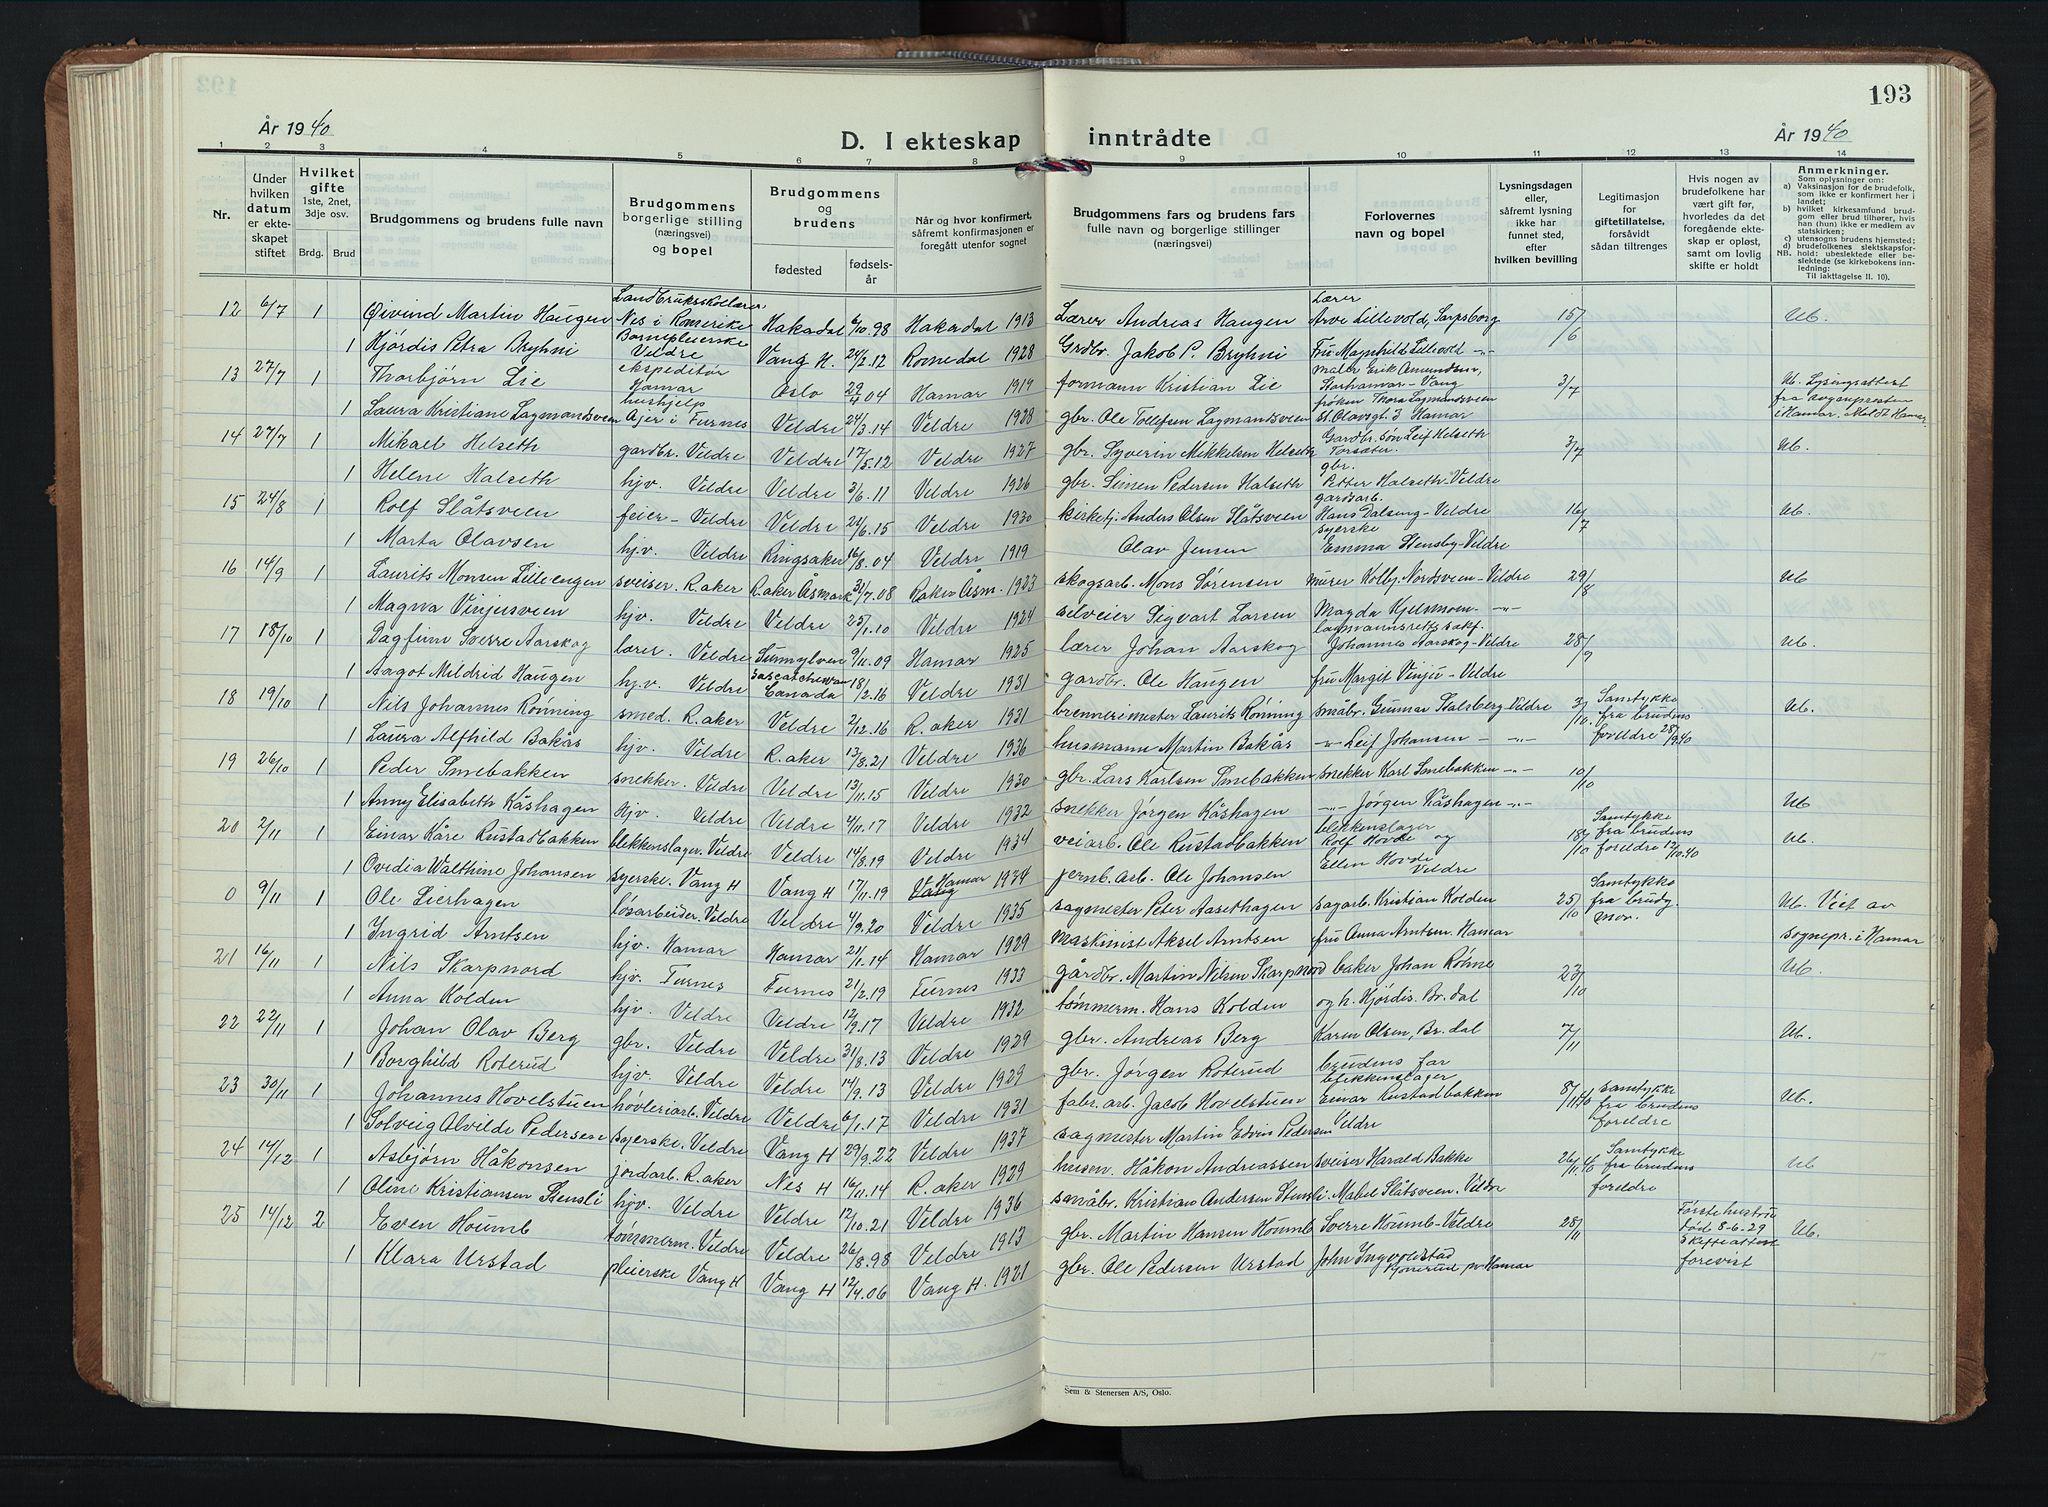 193
År 1940
D. I ekteskap inntrådte
År 1940
1 2 3 4 5 6 7 8 9 10 11 12 13 14
Nr.
Under hvilken datum er ekteskapet stiftet
Hvilket gifte 1ste, 2net, 3dje osv.
Brdg. Brud
Brudgommens og brudens fulle navn
Brudgommens borgerlige stilling (næringsvei) og bopel
Brudgommens og brudens
fødested
fødselsår
Når og hvor konfirmert, såfremt konfirmasjonen er foregått utenfor sognet
Brudgommens fars og brudens fars fulle navn og borgerlige stillinger (næringsvei)
Forlovernes navn og bopel
Lysningsdagen eller, såfremt lysning ikke har funnet sted, efter hvilken bevilling
Legitimasjon for giftetillatelse, forsåvidt sådan tiltrenges
Hvis nogen av brudefolkene har vært gift før, hvorledes da det foregående ekteskap er opløst, samt om lovlig skifte er holdt
Anmerkninger.
Som oplysninger om:
a) Vaksinasjon for de brudefolk, som ikke er konfirmert her i landet;
b) hvilket kirkesamfund brudgom eller brud tilhører, hvis han (hun) ikke er medlem av statskirken;
c) utensogns brudens hjemsted;
d) brudefolkenes slektskapsforhold: ubeslektede eller beslektede (se kirkebokens innledning:
NB. Til iakttagelse II. 10).
12 6/7 1 Øivind Martin Haugen Landbruksskolelærer Nes i Romerike Hakadal 6/10.98 Hakadal 1913 Lærer Andreas Haugen Lærer Arve Lillevold, Sarpsborg 15/6 Ub.
1 Hjördis Petra Bryhni Barnepleierske Veldre Vang H. 24/2.12 Romedal 1928 Grdbr. Jakob P. Bryhni Fru Magnhild Lillevold -"-
13 27/7 1 Thorbjörn Lie ekspeditør Hamar Oslo 29/4 04 Hamar 1919 formann Kristian Lie maler Erik Amundsen, Storhamar-Vang 3/7 Ub. Lysingsattest fra sogneprosten i Hamar. Meldt Hamar.
1 Laura Kristiane Lagmandsveen hushjelp Ajer i Furnes Veldre 24/3.14 Veldre 1928 gbr. Ole Tollefsen Lagmandsveen frøken Thora Lagmandsveen st. Olavsgt. 3 Hamar
14 27/7 1 Mikael Helseth gardbr. Veldre Veldre 17/5.12 Veldre 1927 gbr. Syverin Mikkelsen Helseth Gardbr. søn Leif Helseth Torsæter. 3/7 Ub.
1 Helene Halseth hjv. Veldre Veldre 3/6.11 Veldre 1926 gbr. Simen Pedersen Halseth gbr. Petter Halseth-Veldre
15 24/8 1 Rolf Slåtsveen feier - Veldre Veldre 22/6.15 Veldre 1930 kirketj. Anders Olsen Slåtsveen gardsarb. Hans Dalseng-Veldre 16/7 Ub.
1 Marta Olavsen hjv. Veldre Ringsaker 16/8.04 Veldre 1919 Olav Jensen syerske Emma Stensby-Veldre
16 14/9 1 Laurits Monsen Lilleengen sveiser. R.aker R.aker Åsmark 31/7.08 R.aker Åsm. 1923 skogsarb. Mons Sørensen murer Kolbj. Nordsveen-Veldre 29/8 Ub
1 Magna Vinjusveen hjv. Veldre Veldre 25/1.10 Veldre 1924 selveier Sigvart Larsen Magda Kjelsmoen -"-
17 18/10 1 Dagfinn Sverre Aarskog lærer. Veldre Sunnylven 9/11.09 Hamar 1925 lærer Johan Aarskog lagmannsrettssekr. Johannes Aarskog-Veldre 28/9 Ub.
1 Aagot Meldrid Haugen hj.v. Veldre Sascatchewan Canada 18/2.16 Veldre 1931 gardbr. Ole Haugen fru Margit Vinju - Veldre
18 19/10 1 Nils Johannes Rönning smed. R.aker Veldre 2/12.16 R.aker 1931 brennerimester Laurits Rönning småbr. Gunnar Stalsberg-Veldre 3/10. Samtykke fra brudens foreldre 28/9.40 Ub.
1 Laura Alfhild Bakås hjv. Veldre R.aker 13/8.21 Veldre 1936 husmann Martin Bakås -"- Leif Johansen - -"-
19 26/10 1 Peder Smebakken snekker. Veldre Veldre 13/11.15 Veldre 1930 gbr. Lars Karlsen Smebakken snekker Karl Smebakken -"- 10/10
1 Anny Elisabeth Kåshagen hjv. Veldre Veldre 4/11.17 Veldre 1932 snekker Jörgen Kåshagen -"- Jörgen Kåshagen -"- Ub
20 2/11 1 Einar Kåre Rustadbakken blekkenslager. Veldre Veldre 14/8.19 Veldre 1934 veiarb. Ole Rustadbakken blekkenslager Rolf Hovde og 18/10 Samtykke fra brudens foreldre 12/10.40 Ub.
1 Ovidia Walthine Johansen syerske. Vang H Vang H 17/11.19 Hamar Vang 1934 jernb. arb. Ole Johansen Ellen Hovde Veldre
0 9/11 1 Ole Lierhagen løsarbeider. Veldre Veldre 4/9.20 Veldre 1935 sagmester Peter Aasethagen sagarb. Kristian Kolden 25/10 Samtykke fra brudg. mor. Ub. Viet av
1 Ingrid Arntsen hjv. Hamar Hamar 21/1.14 Hamar 1929 maskinist Aksel Arntsen fru Anna Arntsen. Hamar sognepr. i Hamar
21 16/11 1 Nils Skarpnord hjv. Furnes Furnes 21/2.19 Furnes 1933 gårdbr. Martin Nilsen Skarpnord baker Johan Röhne 23/10 Ub.
1 Anna Kolden hjv. Veldre Veldre 12/9.17 Veldre 1932 tømmerm. Hans Kolden og h. Hjördis. Br.dal
22 22/11 1 Johan Olav Berg gbr. Veldre Veldre 31/8.13 Veldre 1929 gbr. Andreas Berg Karen Olsen, Br.dal 7/11 Ub.
1 Borghild Roterud hjv. Veldre Veldre 14/9.13 Veldre 1929 gbr. Jörgen Roterud brudens far
23 30/11 1 Johannes Hovelstuen høvleriarb. Veldre Veldre 6/1.17 Veldre 1931 fabr. arb. Jacob Hovelstuen blikkenslager Einar Rustadbakken 8/11 40 Samtykke fra brudens foreldre Ub.
1 Solveig Alvilde Pedersen syerske. Veldre Vang H 29/9.22 Veldre 1937 sagmester Martin Edvin Pedersen Veldre
24 14/12 1 Asbjørn Håkonsen jordarb. R.aker Nes H 16/11.14 R.aker 1929 husm. Håkon Andreassen sveiser Harald Bakke 26/11.40 Samtykke fra brudens foreldre Ub
1 Oline Kristiansen Stensli hjv. Veldre Veldre 12/10.21 Veldre 1936 småbr. Kristian Andersen Stensli. Mabel Slåtsveen. Veldre
25 14/12 2 Even Houmb tømmerm. Veldre Veldre 26/8.98 Veldre 1913 gbr. Martin Hansen Houmb Sverre Houmb-Veldre 28/11 Første hustru død 8-6.29 Skifteattest forevist Ub.
1 Klara Urstad pleierske Vang H Vang H 12/4.06 Vang H. 1921 gbr. Ole Pedersen Urstad John Ingvoldstad
Sem & Stenersen A/S, Oslo.